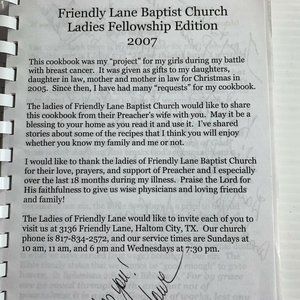 Friendly Lane Baptist Church
Ladies Fellowship Edition
2007
This cookbook was my "project" for my girls during my battle
with breast cancer. It was given as gifts to my daughters,
daughter in law, mother and mother in law for Christmas in
2005. Since then, I have had many "requests" for my cookbook.
The ladies of Friendly Lane Baptist Church would like to share
this cookbook from their Preacher's wife with you. May it be a
blessing to your home as you read it and use it. I've shared
stories about some of the recipes that I think you will enjoy
whether you know my family and me or not.
I would like to thank the ladies of Friendly Lane Baptist Church
for their love, prayers, and support of Preacher and I especially
over the last 18 months during my illness. Praise the Lord for
His faithfulness to give us wise physicians and loving friends
and family!
The Ladies of Friendly Lane would like to invite each of you to
visit us at 3136 Friendly Lane, Haltom City, TX. Our church
phone is 817-834-2572, and our service times are Sundays at
10 am, 11 am, and 6 pm and Wednesdays at 7:30 pm.
you!